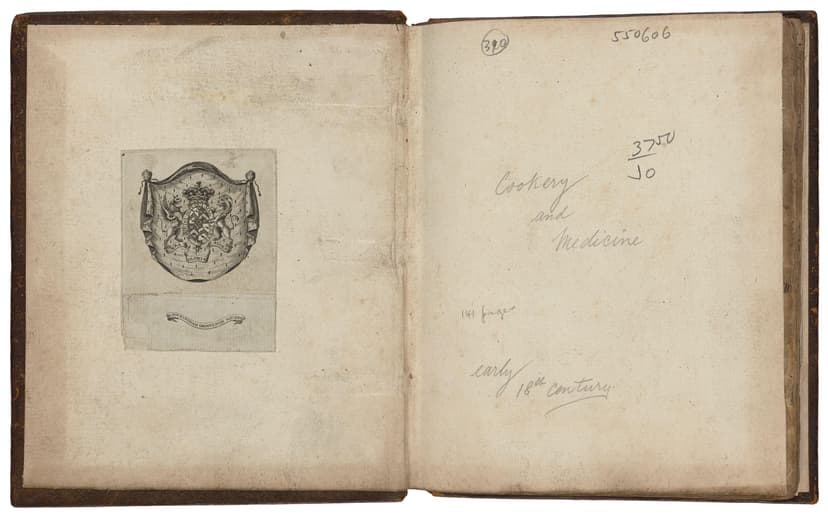 390
550606
3750
Jo
Cookery
and
Medicine
141 pages
early
18th century